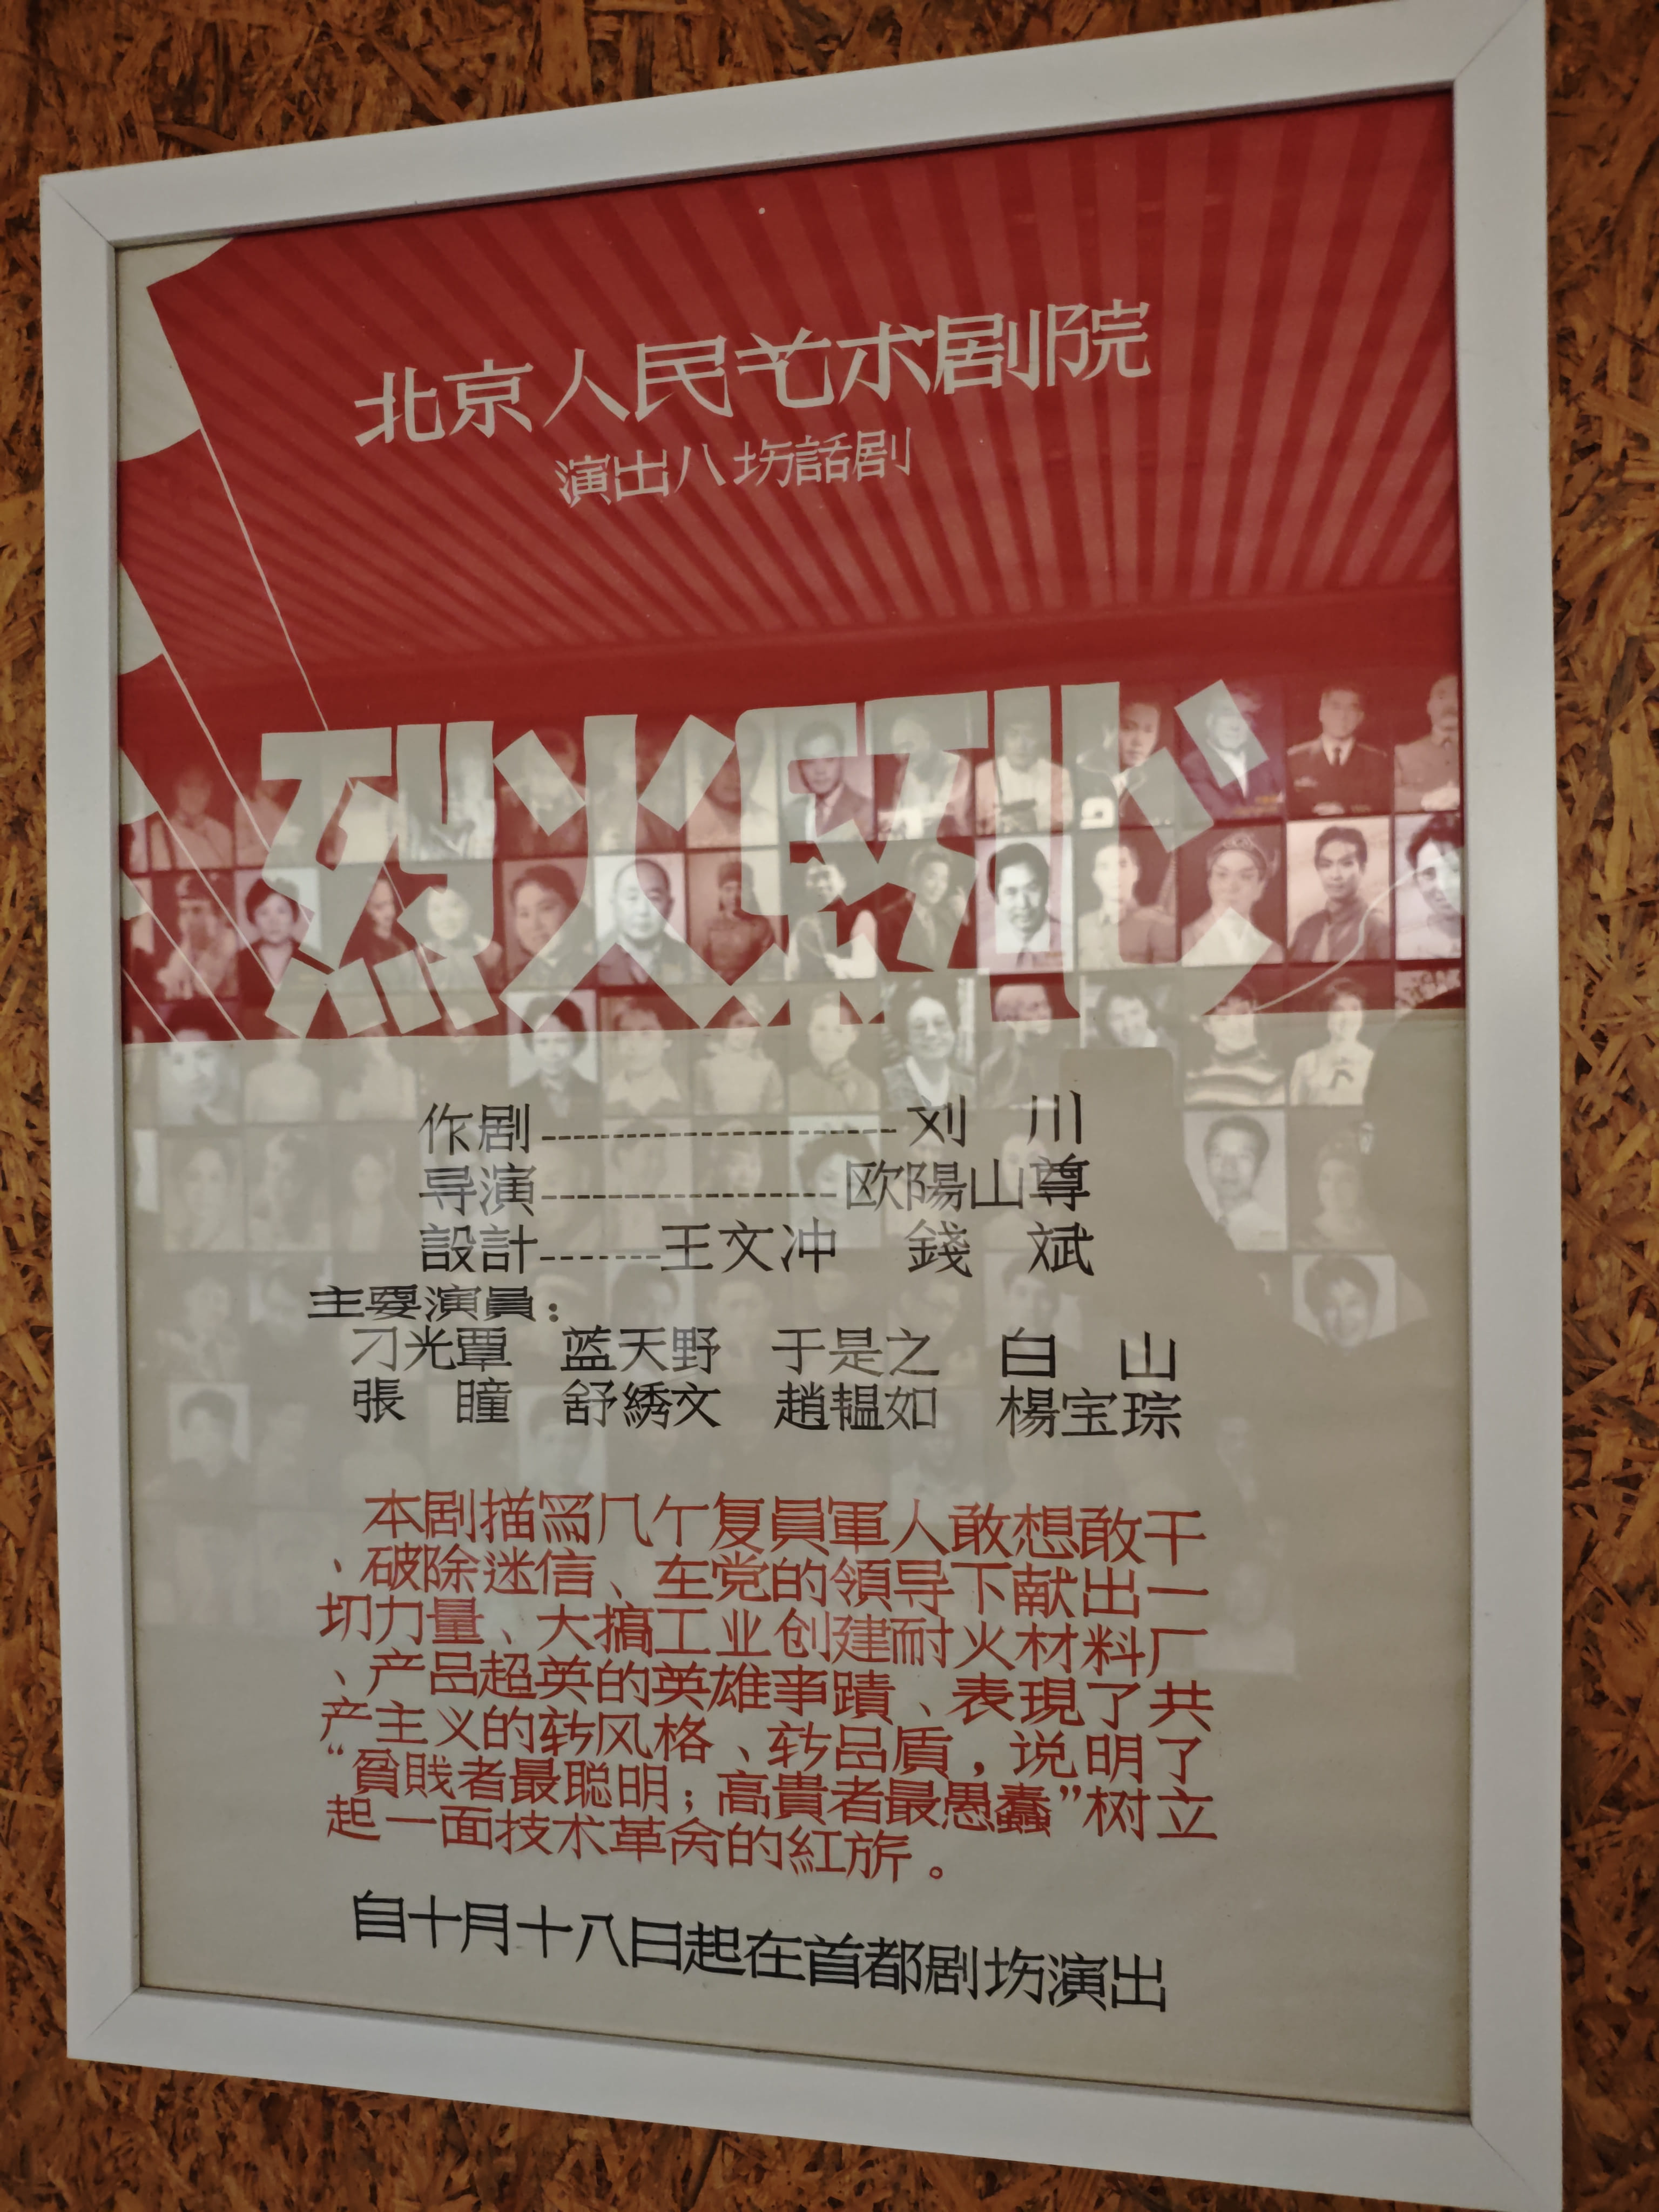 北京人民艺术剧院
演出八场話剧
烈火紅心
作剧------刘 川
导演------欧陽山尊
設計------王文冲 錢 斌
主要演員：
刁光覃 蓝天野 于是之 白 山
張 瞳 舒綉文 趙韞如 楊宝琮
本剧描寫几个复員軍人敢想敢干
、破除迷信、在党的領导下献出一
切力量、大搞工业创建耐火材料厂
、产品超英的英雄事蹟、表現了共
产主义的新风格、新品质，说明了
“貧賎者最聪明；高貴者最愚蠢”树立
起一面技术革命的紅旂。
自十月十八日起在首都剧场演出